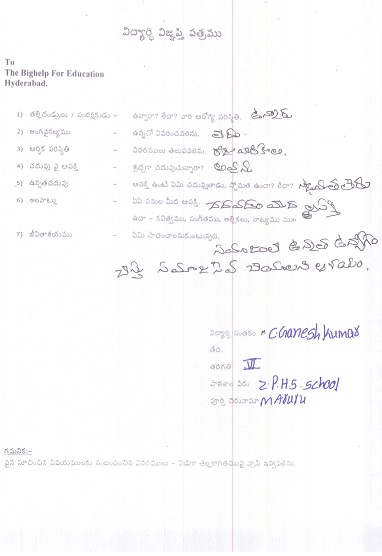 విద్యార్థి విజ్ఞప్తి పత్రము
To
The Bighelp For Education
Hyderabad.
1) తల్లిదండ్రులు / సంరక్షకుడు - ఉన్నారా? లేదా? వారి ఆరోగ్య పరిస్థితి. ఉన్నారు
2) అంగవైకల్యము - ఉన్నచో వివరించవలెను. లేదు
3) ఆర్థిక పరిస్థితి - వివరములు తెలుపవలెను.
4) చదువు పై ఆసక్తి - శ్రద్ధగా చదువుచున్నారా? అవును
5) ఉన్నతచదువు - ఆసక్తి ఉంటే ఏమి చదువుతాడు. స్తోమత ఉందా? లేదా? స్తోమత లేదు
6) అలవాట్లు - ఏఏ పనుల మీద ఆసక్తి. చదవడం మీద ఆసక్తి
ఉదా - కవిత్వము, సంగీతము, అల్లికలు, నాట్యము మొ॥
7) జీవితాశయము - ఏమి సాధించాలనుకుంటున్నది.
సమాజంలో ఉన్నత ఉద్యోగం
చేసి సమాజసేవ చేయాలని ఆశయం.
విద్యార్థి సంతకం C.Ganesh Kumar
తేది.
తరగతి VI
పాఠశాల పేరు Z.P.H.S. School
పూర్తి చిరునామా Maruru
గమనిక:-
పైన సూచించిన విషయములకు సంబంధించిన వివరములు - విడిగా తెల్లకాగితముపై వ్రాసి ఇవ్వవలెను.